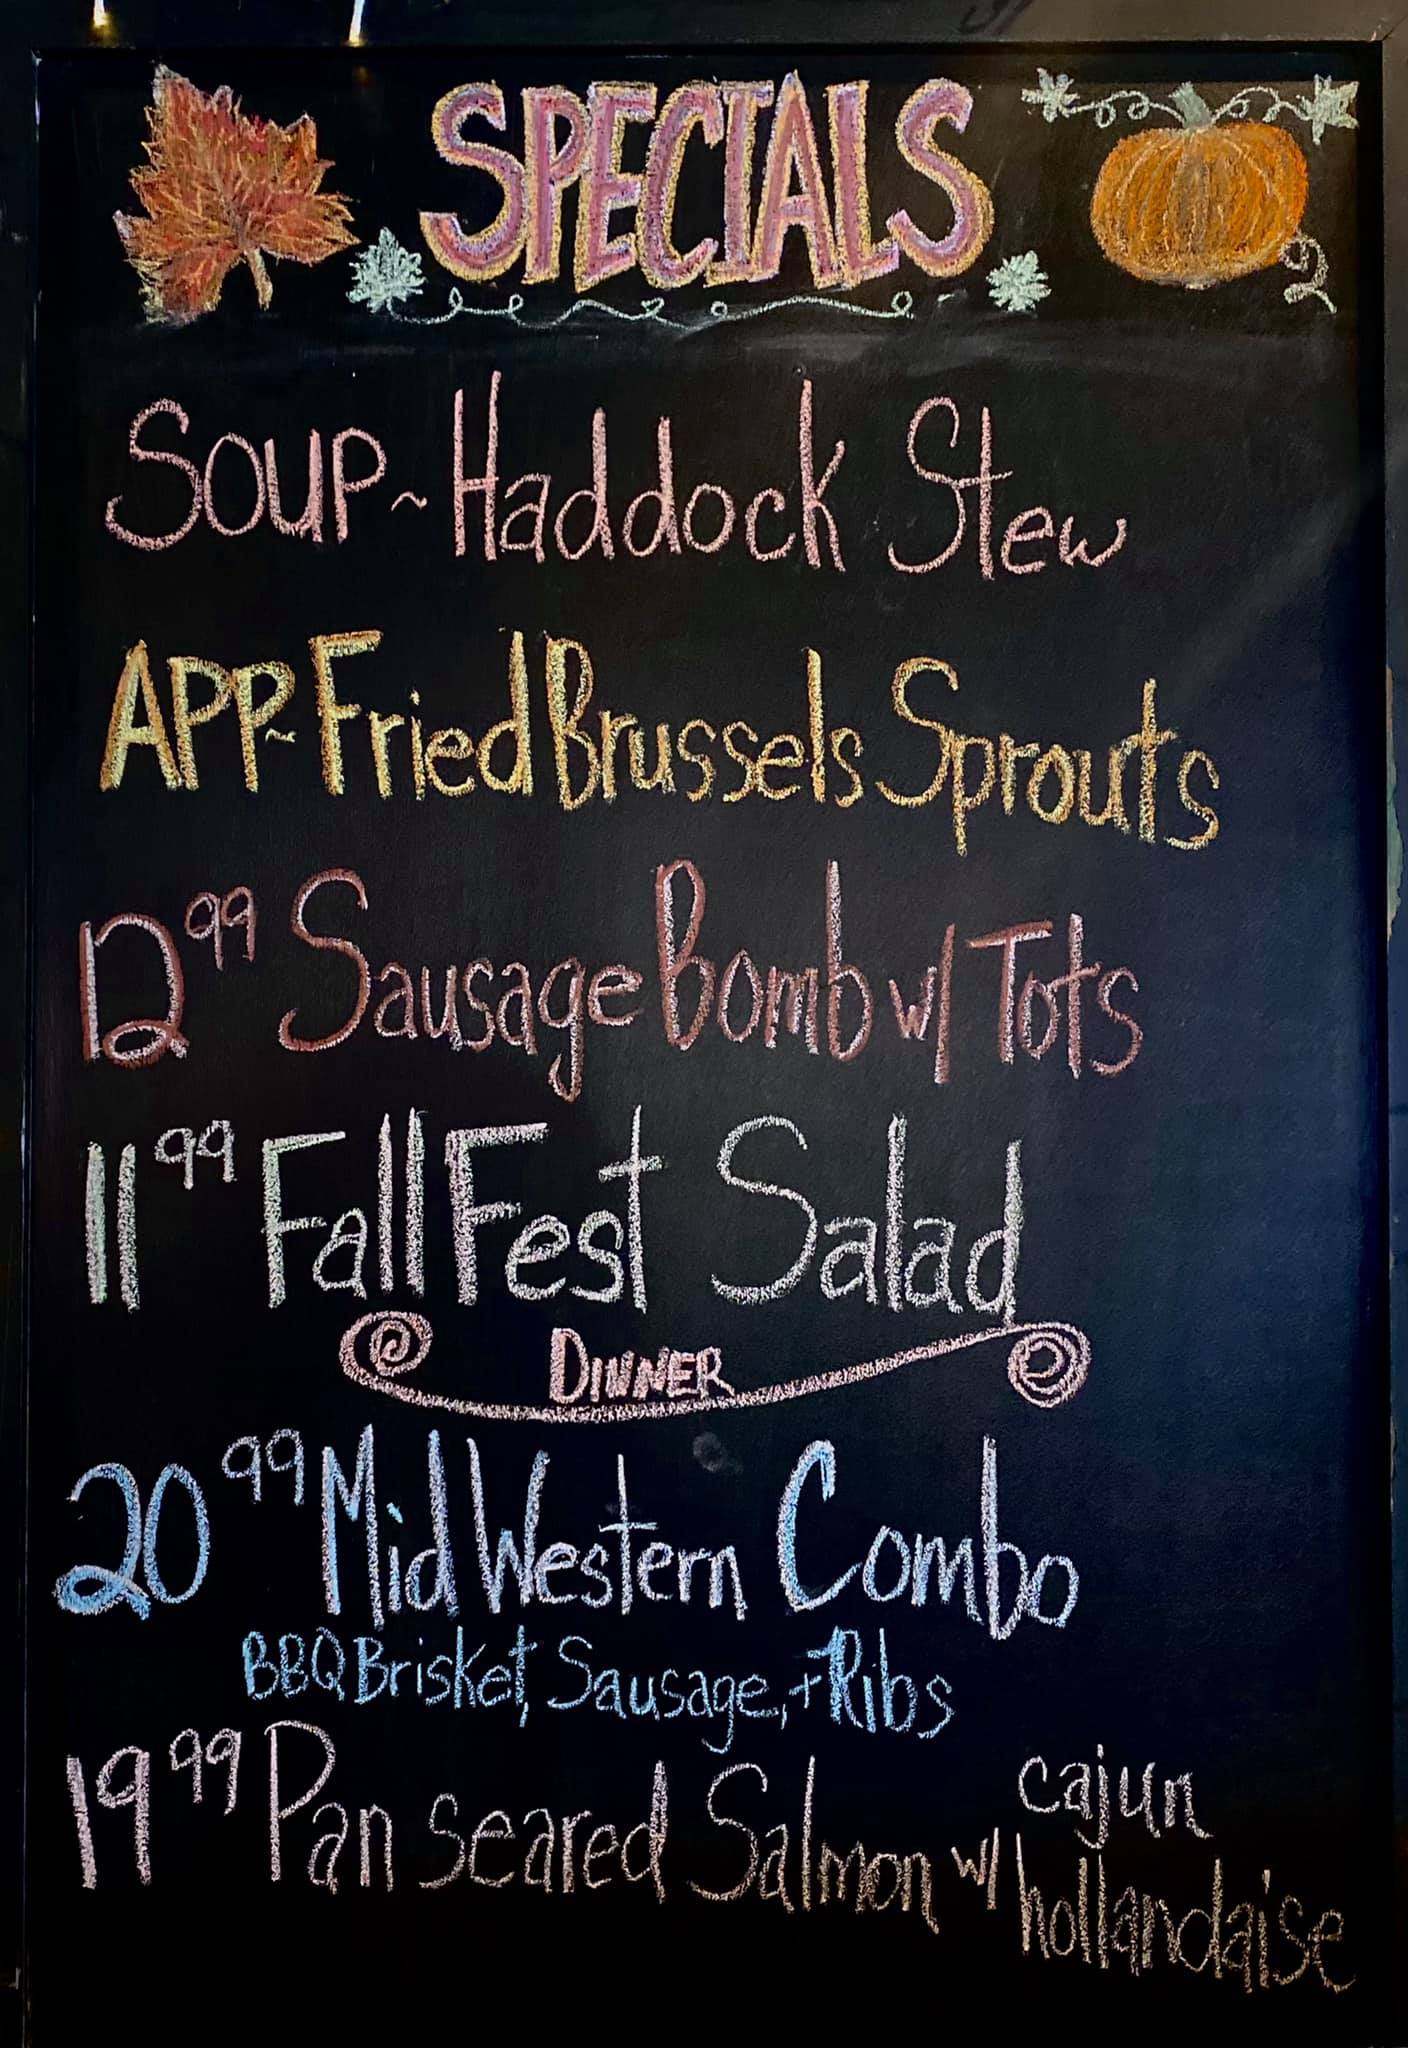 SPECIALS
SOUP~Haddock Stew
APP~Fried Brussels Sprouts
12.99 Sausage Bomb w/ Tots
11.99 Fall Fest Salad
DINNER
20.99 MidWestern Combo
BBQ Brisket, Sausage, + Ribs
19.99 Pan seared Salmon w/ cajun
hollandaise